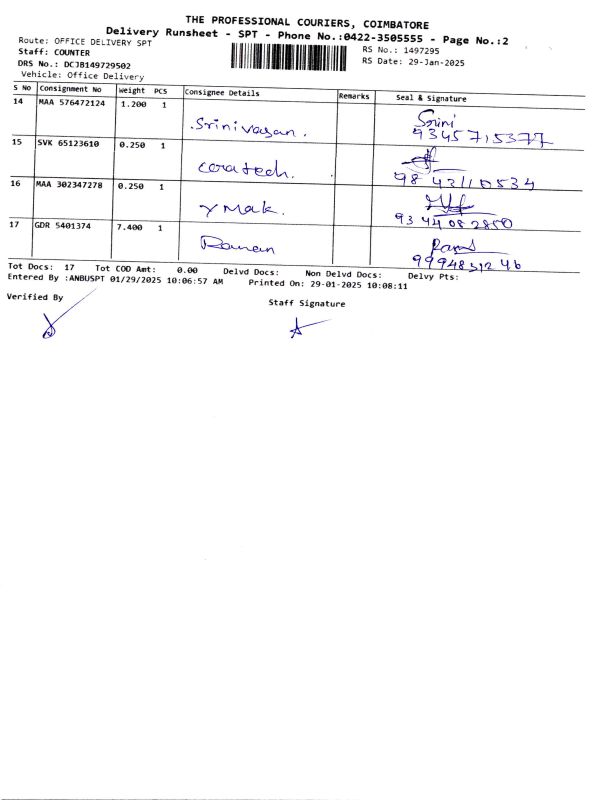 THE PROFESSIONAL COURIERS, COIMBATORE
Delivery Runsheet - SPT - Phone No.:0422-3505555 - Page No.:2
Route: OFFICE DELIVERY SPT
Staff: COUNTER
DRS No.: DCJB149729502
Vehicle: Office Delivery
RS No.: 1497295
RS Date: 29-Jan-2025
S No Consignment No Weight PCS Consignee Details Remarks Seal & Signature
14 MAA 576472124 1.200 1 Srinivasan. Srini
9345715377
15 SVK 65123610 0.250 1 ceratech.
9843110534
16 MAA 302347278 0.250 1 Y Mak.
9344082850
17 GDR 5401374 7.400 1 Raman
9994831246
Tot Docs: 17 Tot COD Amt: 0.00 Delvd Docs: Non Delvd Docs: Delvy Pts:
Entered By :ANBUSPT 01/29/2025 10:06:57 AM Printed On: 29-01-2025 10:08:11
Verified By Staff Signature